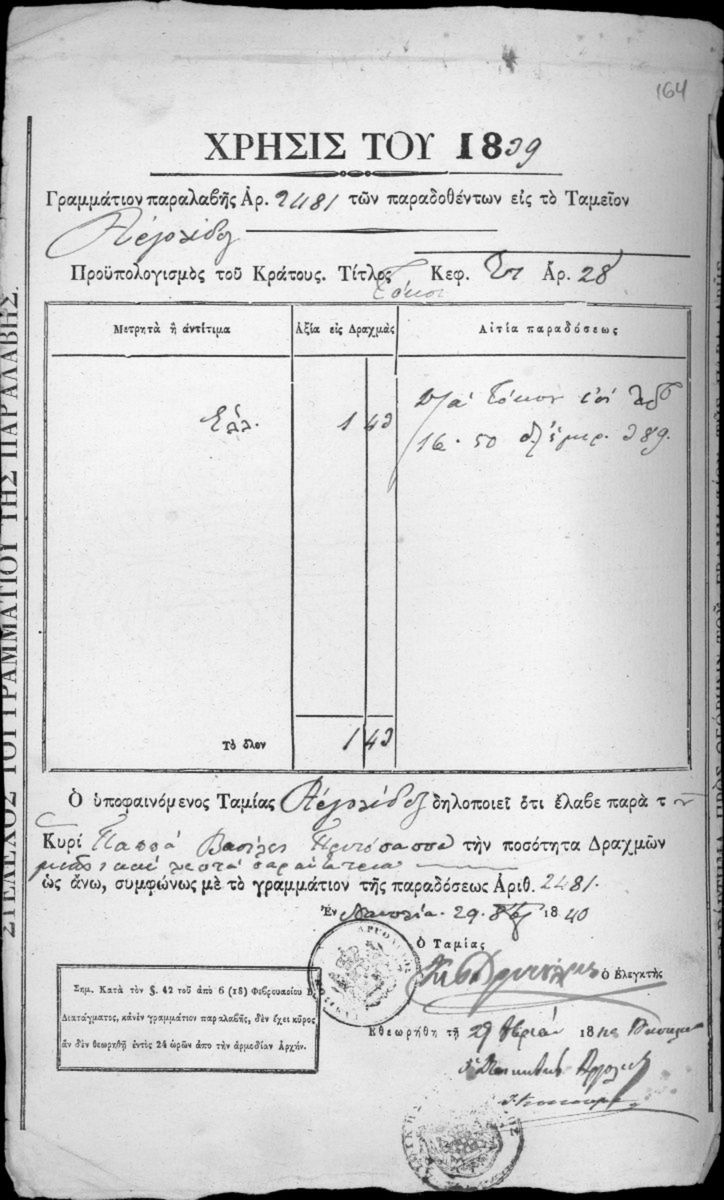 164
ΧΡΗΣΙΣ ΤΟΥ 1839
Γραμμάτιον παραλαβῆς Ἀρ. 2481 τῶν παραδοθέντων εἰς τὸ Ταμεῖον
Ἀργολίδος
Προϋπολογισμὸς τοῦ Κράτους. Τίτλος Κεφ. Ἀρ. 28
Τόκοι
Μετρητὰ ἢ ἀντίτιμα Ἀξία εἰς Δραχμὰς Αἰτία παραδόσεως
Ἑλλ. 1 43 τόκον
16.50
Τὸ ὅλον 1 43
Ὁ ὑποφαινόμενος Ταμίας Ἀργολίδος δηλοποιεῖ ὅτι ἔλαβε παρὰ τοῦ
Κυρί Παππᾶ τὴν ποσότητα Δραχμῶν
μιᾶς καὶ λεπτὰ σαράντα τρία
ὡς ἄνω, συμφώνως μὲ τὸ γραμμάτιον τῆς παραδόσεως Ἀριθ. 2481.
Ἐν Ναυπλίᾳ. 29 1840
Ὁ Ταμίας
ὁ Ἐλεγκτὴς
Σημ. Κατὰ τὸν §. 42 τοῦ ἀπὸ 6 (18) Φεβρουαρίου Β.
Διατάγματος, κἀνὲν γραμμάτιον παραλαβῆς, δὲν ἔχει κῦρος
ἂν δὲν θεωρηθῇ ἐντὸς 24 ὡρῶν ἀπο τὴν ἁρμοδίαν Ἀρχήν.
Εθεωρήθη τῇ 29 18
ὁ Διοικητὴς Ἀργολίδος
ΣΤΕΛΕΧΟΣ ΤΟΥ ΓΡΑΜΜΑΤΙΟΥ ΤΗΣ ΠΑΡΑΛΑΒΗΣ.